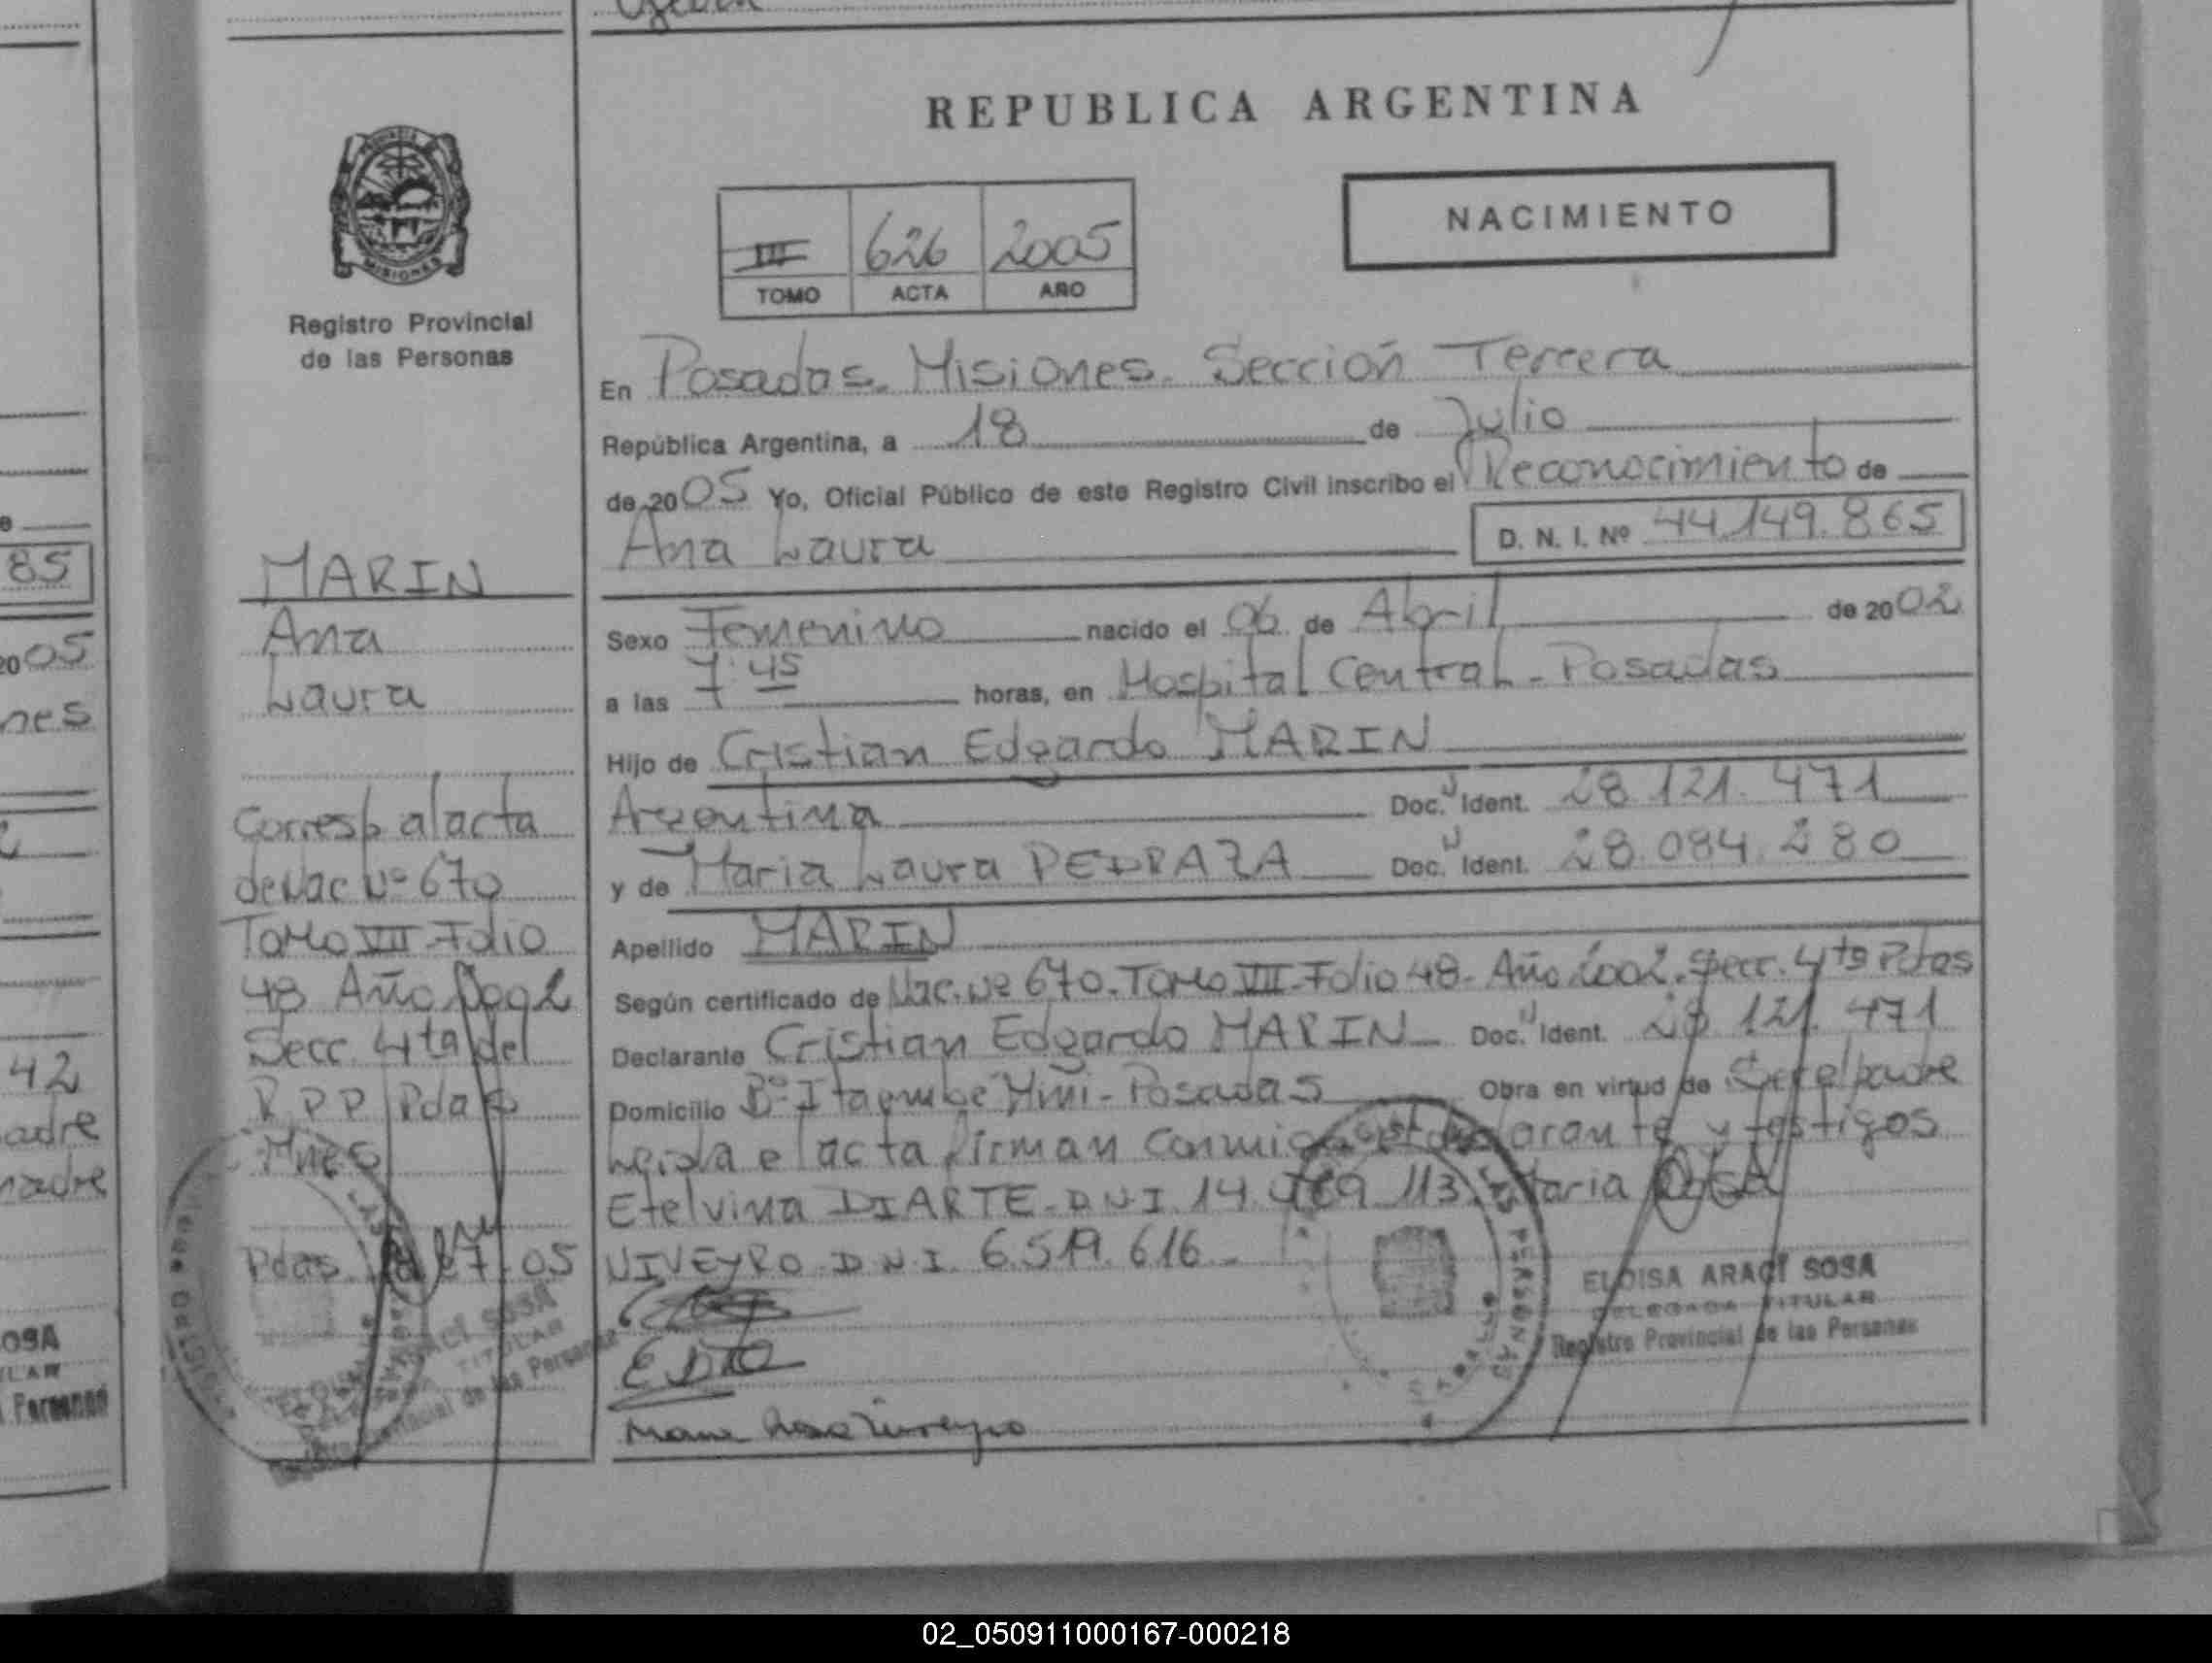 REPUBLICA ARGENTINA
NACIMIENTO
III 626 2005
TOMO ACTA AÑO
PROVINCIA
MISIONES
Registro Provincial
de las Personas
En Posadas Misiones Sección Tercera
República Argentina, a 18 de Julio
de 2005 Yo, Oficial Público de este Registro Civil inscribo el Reconocimiento de
Ana Laura D. N. I. Nº 44.149.865
Sexo Femenino nacido el 06 de Abril de 2002
a las 7:45 horas, en Hospital Central - Posadas
Hijo de Cristian Edgardo MARIN
Argentina Doc. Ident. 28.121.471
y de Maria Laura PEDRAZA Doc. Ident. 28.084.280
Apellido MARIN
Según certificado de Nac. Nº 670. Tomo VII - Folio 48 - Año 2002. Secc. 4ta Pdas
Declarante Cristian Edgardo MARIN Doc. Ident. 28 121. 471
Domicilio Bº Itaembe Mini - Posadas Obra en virtud de Ser el padre
Leida el acta firman conmigo el declarante y testigos
Etelvina DIARTE - D.N.I. 14. 113 Maria Rosa
VIVEYRO D.N.I. 6.519.616 -
ELOISA ARACI SOSA
DELEGADA TITULAR
Registro Provincial de las Personas
MARIN
Ana
Laura
Corresp al acta
de Nac Nº 670
Tomo VII - Folio
48 Año 2002
Secc. 4ta del
R P P Pdas
Mnes
Pdas 18 07-05
ARACI SOSA
TITULAR
Provincial de las Personas
85
2005
nes
42
adre
madre
OSA
LAR
Personas
02_050911000167-000218